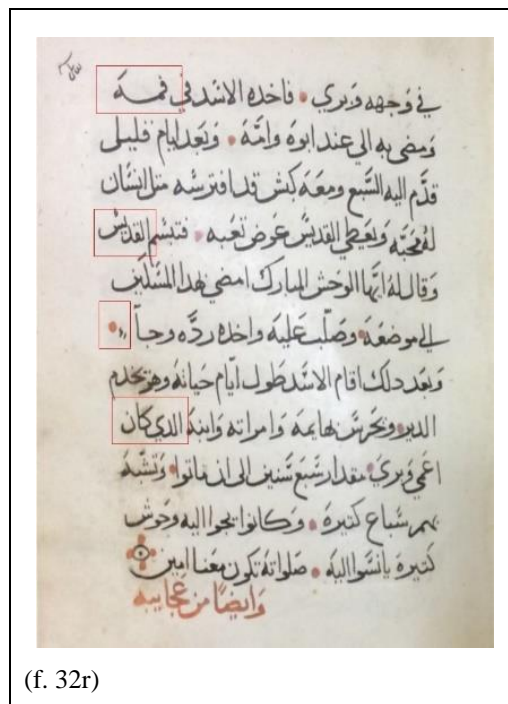 في وَجهه وَبري • فاخده الاسَد في فمه
وَمضى به الي عند ابوه وامّه • وَبَعد ايام قليل
قدّم اليه السَّبع ومعَه كبش قد افترسَه متل انسَان
لهُ محبّه وَيَعطي القديسّ عَوض تعَبه • فتبسَّم القدّيسّ
وَقال لهُ ايّها الوحَش المبارك امضي بهدا المسّكين
الي موضعَه • وَصَلّب عَليه واخده ردّه وجاً •
وَبعد دلك اقام الاسَد طول ايّام حيَاتهُ وهو يخدم
الدير • ويحَرسَّ بهايمه وَامراته وَابنهُ الدي كان
اعَمي وَبري • مقدار سَّبَع سّنين الى ان ماتوا • وَتشَّبهَ
بهم سّباع كتيرة • وَكانوا يجوا اليه وَحَوش
كتيرة يانسَّوا اليه • صَلواتهُ تكون معَنا امين
وَايضًا من عَجايبه
(f. 32r)